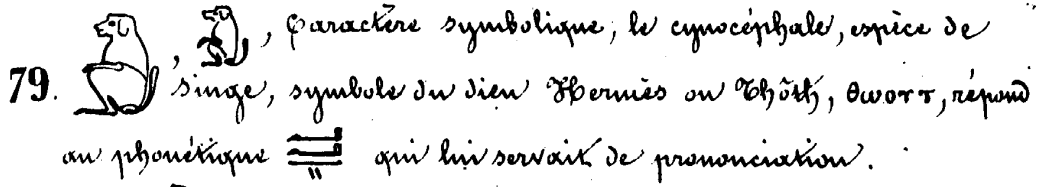 , , Caractère symbolique; le cynocéphale, espèce de
79. singe, symbole du dieu Hermès ou Thôth, ⲑⲱⲟⲩⲧ, répond
au phonétique qui lui servait de prononciation.